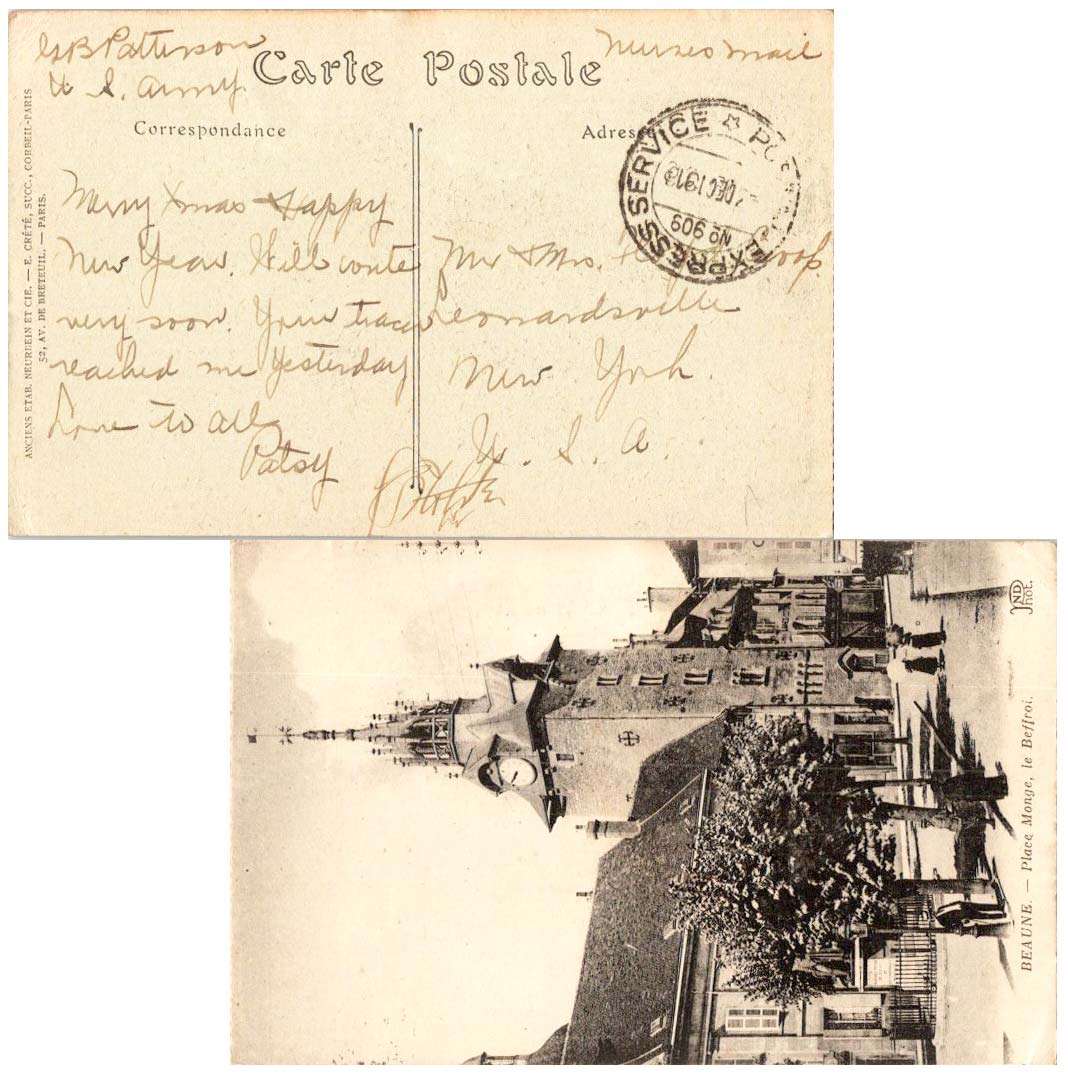 G B Patterson
U. S. Army.
Nurses mail
Carte Postale
Correspondance
Adresse
ANCIENS ETAB. NEURDEIN ET CIE. — E. CRÉTÉ, SUCC., CORBEIL-PARIS
52, AV. DE BRETEUIL. — PARIS.
EXPRESS SERVICE ☆ POSTAL
DEC 1918
No 909
Merry Xmas & Happy
New Year. Will write
very soon. Your
reached me yesterday
Love to all
Patsy
Mr & Mrs.
Leonardsville
New York.
U. S. A.
ND Phot.
BEAUNE. — Place Monge, le Beffroi.